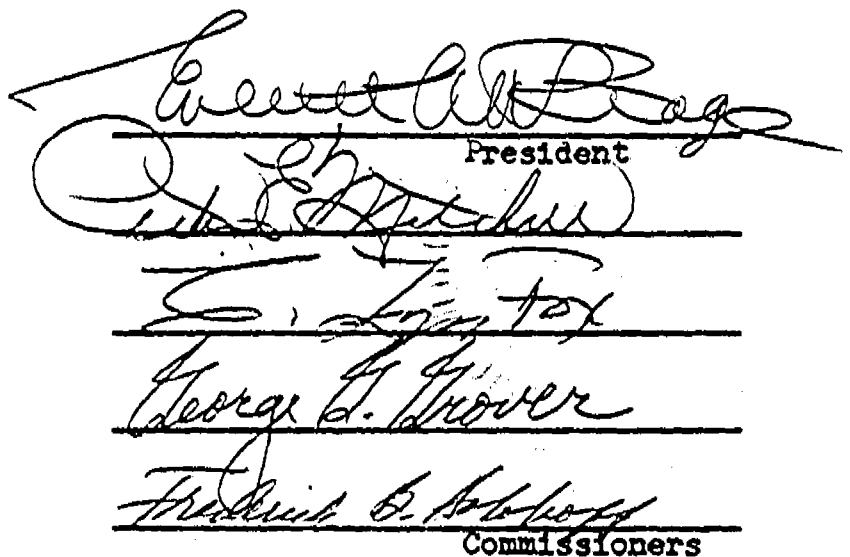 Everett C. McKeage
President
Peter E. Mitchell
C. Lyn Fox
George G. Grover
Frederick B. Holoboff
Commissioners